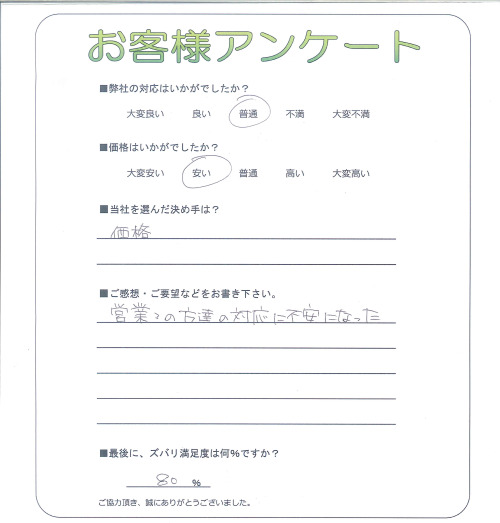 お客様アンケート
■弊社の対応はいかがでしたか？
大変良い 良い 普通 不満 大変不満
■価格はいかがでしたか？
大変安い 安い 普通 高い 大変高い
■当社を選んだ決め手は？
価格
■ご感想・ご要望などをお書き下さい。
営業の方達の対応に不安になった
■最後に、ズバリ満足度は何％ですか？
80 %
ご協力頂き、誠にありがとうございました。